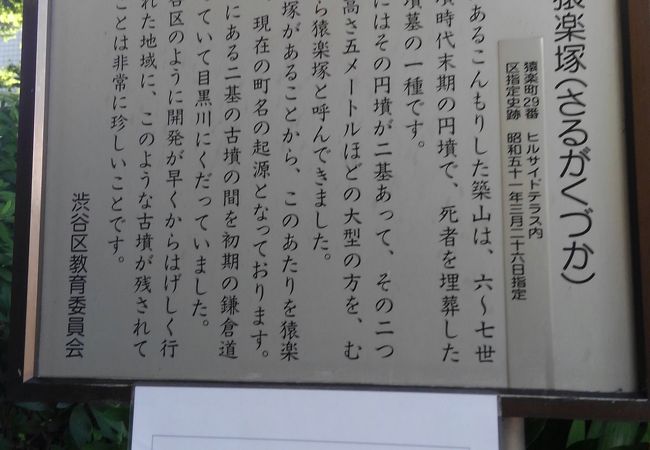 猿楽塚(さるがくづか)
猿楽町29番 ヒルサイドテラス内
区指定史跡 昭和五十一年三月二十六日指定
あるこんもりした築山は、六〜七世
墳時代末期の円墳で、死者を埋葬した
墳墓の一種です。
にはその円墳が二基あって、その二つ
高さ五メートルほどの大型の方を、む
ら猿楽塚と呼んできました。
塚があることから、このあたりを猿楽
、現在の町名の起源となっております。
にある二基の古墳の間を初期の鎌倉道
っていて目黒川にくだっていました。
谷区のように開発が早くからはげしく行
れた地域に、このような古墳が残されて
ことは非常に珍しいことです。
渋谷区教育委員会